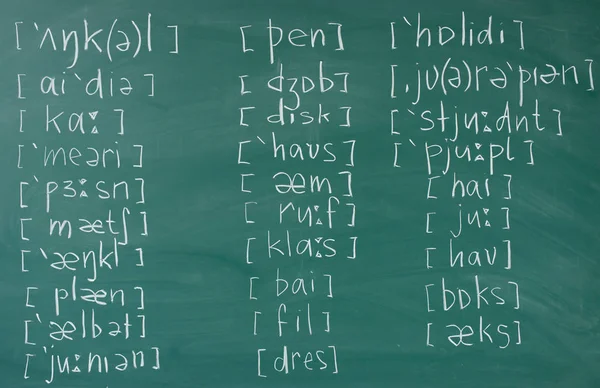 [ˋʌŋk(ə)l]
[aiˋdiə]
[kaː]
[ˋmeəri]
[ˋpɜːsn]
[mætʃ]
[ˋæŋkl]
[plæn]
[ˋælbət]
[ˋjuːniən]
[pen]
[dʒɒb]
[dısk]
[ˋhaʊs]
[æm]
[ruːf]
[klaːs]
[bai]
[fil]
[dres]
[ˋhɒlidi]
[ˌjʊ(ə)rəˋpıən]
[ˋstjuːdnt]
[ˋpjuːpl]
[haı]
[juː]
[haʊ]
[bɒks]
[æks]